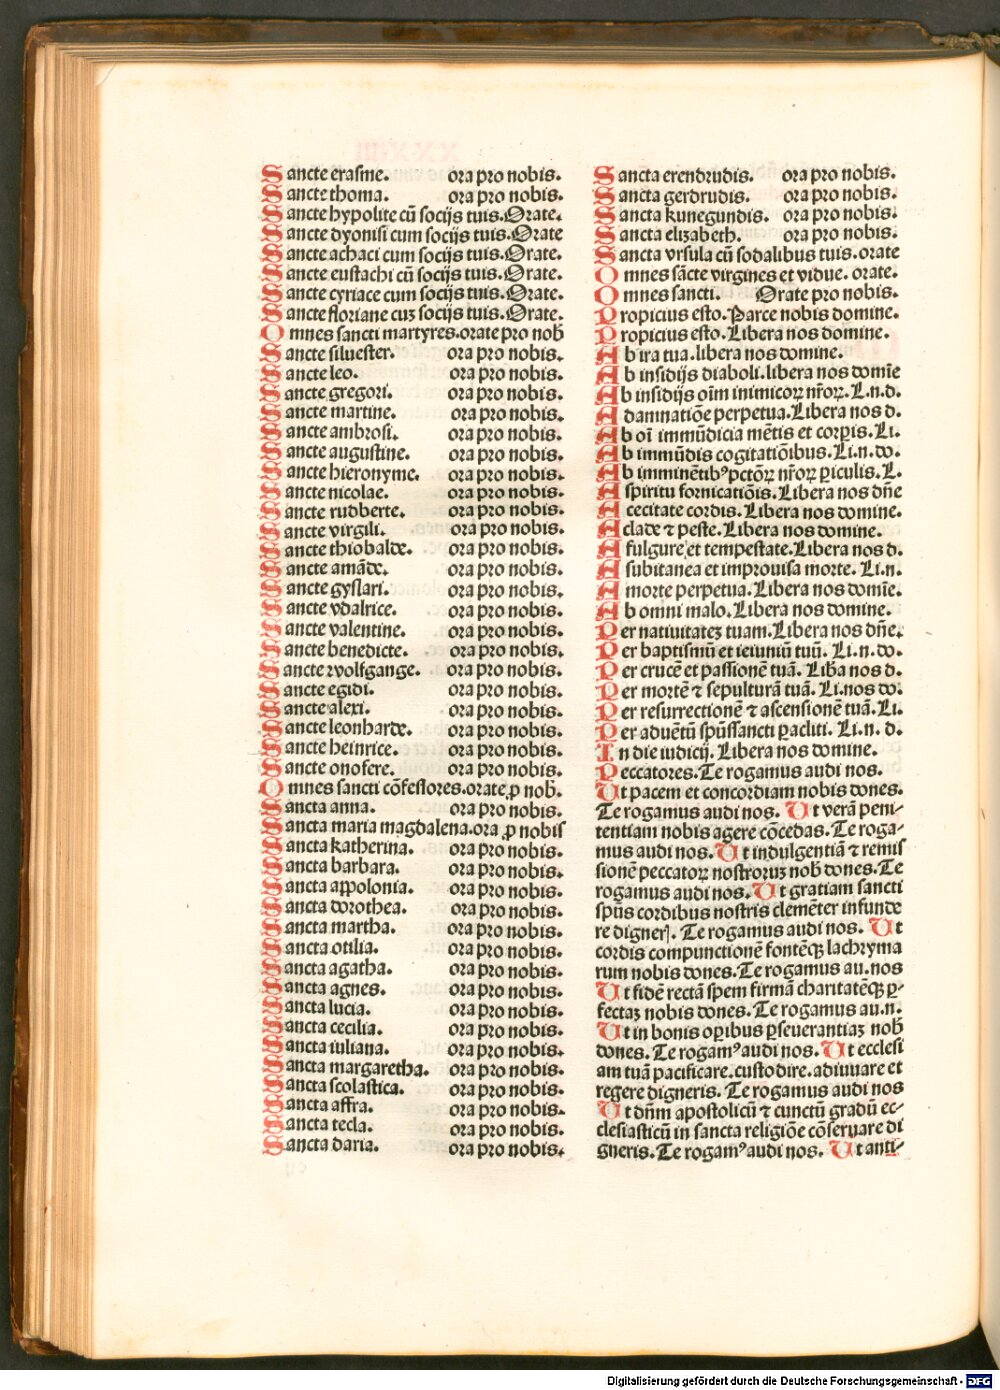 Sancte erasme. ora pro nobis.
Sancte thoma. ora pro nobis.
Sancte hypolite cū socijs tuis. Orate.
Sancte dyonisi cum socijs tuis. Orate
Sancte achaci cum socijs tuis. Orate.
Sancte eustachi cū socijs tuis. Orate.
Sancte cyriace cum socijs tuis. Orate.
Sancte floriane cuꝫ socijs tuis. Orate.
Omnes sancti martyres. orate pro nob̄
Sancte siluester. ora pro nobis.
Sancte leo. ora pro nobis.
Sancte gregori. ora pro nobis.
Sancte martine. ora pro nobis.
Sancte ambrosi. ora pro nobis.
Sancte augustine. ora pro nobis.
Sancte hieronyme. ora pro nobis.
Sancte nicolae. ora pro nobis.
Sancte rudberte. ora pro nobis.
Sancte virgili. ora pro nobis.
Sancte thiobalde. ora pro nobis.
Sancte amāde. ora pro nobis.
Sancte gyslari. ora pro nobis.
Sancte vdalrice. ora pro nobis.
Sancte valentine. ora pro nobis.
Sancte benedicte. ora pro nobis.
Sancte wolfgange. ora pro nobis.
Sancte egidi. ora pro nobis.
Sancte alexi. ora pro nobis.
Sancte leonharde. ora pro nobis.
Sancte heinrice. ora pro nobis.
Sancte onofere. ora pro nobis.
Omnes sancti cōfessores. orate ꝓ nob̄.
Sancta anna. ora pro nobis.
Sancta maria magdalena. ora ꝓ nobis
Sancta katherina. ora pro nobis.
Sancta barbara. ora pro nobis.
Sancta appolonia. ora pro nobis.
Sancta dorothea. ora pro nobis.
Sancta martha. ora pro nobis.
Sancta otilia. ora pro nobis.
Sancta agatha. ora pro nobis.
Sancta agnes. ora pro nobis.
Sancta lucia. ora pro nobis.
Sancta cecilia. ora pro nobis.
Sancta iuliana. ora pro nobis.
Sancta margaretha. ora pro nobis.
Sancta scolastica. ora pro nobis.
Sancta affra. ora pro nobis.
Sancta tecla. ora pro nobis.
Sancta daria. ora pro nobis.
Sancta erendrudis. ora pro nobis.
Sancta gerdrudis. ora pro nobis.
Sancta kunegundis. ora pro nobis.
Sancta elizabeth. ora pro nobis.
Sancta vrsula cū sodalibus tuis. orate
Omnes sācte virgines et vidue. orate.
Omnes sancti. Orate pro nobis.
Propicius esto. Parce nobis domine.
Propicius esto. Libera nos domine.
Ab ira tua. libera nos domine.
Ab insidijs diaboli. libera nos domīe
Ab insidijs oīm inimicoꝝ nr̄oꝝ. L. n. d.
A damnatiōe perpetua. Libera nos d.
Ab oī immūdicia mētis et corꝑis. Li.
Ab immūdis cogitatiōibus. Li. n. do.
Ab imminētibꝰ pctōꝝ nr̄oꝝ ꝑiculis. L.
A spiritu fornicatiōis. Libera nos dn̄e
A cecitate cordis. Libera nos domine.
A clade ⁊ peste. Libera nos domine.
A fulgure et tempestate. Libera nos d.
A subitanea et improuisa morte. Li. n.
A morte perpetua. Libera nos domīe.
Ab omni malo. Libera nos domine.
Per natiuitateꝫ tuam. Libera nos dn̄e.
Per baptismū et ieiuniū tuū. Li. n. do.
Per crucē et passionē tuā. Lib̄a nos d.
Per mortē ⁊ sepulturā tuā. Li. nos do.
Per resurrectionē ⁊ ascensionē tuā. Li.
Per aduētū spūssancti ꝑacliti. Li. n. d.
In die iudicij. Libera nos domine.
Peccatores. Te rogamus audi nos.
Ut pacem et concordiam nobis dones.
Te rogamus audi nos. Ut verā peni-
tentiam nobis agere cōcedas. Te roga-
mus audi nos. Ut indulgentiā ⁊ remis
sionē peccatoꝝ nostroruꝫ nob̄ dones. Te
rogamus audi nos. Ut gratiam sancti
spūs cordibus nostris clemēter infunde
re digneꝭ. Te rogamus audi nos. Ut
cordis compunctionē fontēqꝫ lachryma
rum nobis dones. Te rogamus au. nos
Ut fidē rectā spem firmā charitatēqꝫ ꝑ-
fectaꝫ nobis dones. Te rogamus au. n.
Ut in bonis oꝑibus ꝑseuerantiaꝫ nob̄
dones. Te rogamꝰ audi nos. Ut ecclesi
am tuā pacificare. custodire. adiuuare et
regere digneris. Te rogamus audi nos
Ut dn̄m apostolicū ⁊ cunctū gradū ec-
clesiasticū in sancta religiōe cōseruare di
gneris. Te rogamꝰ audi nos. Ut anti-
Digitalisierung gefördert durch die Deutsche Forschungsgemeinschaft - DFG